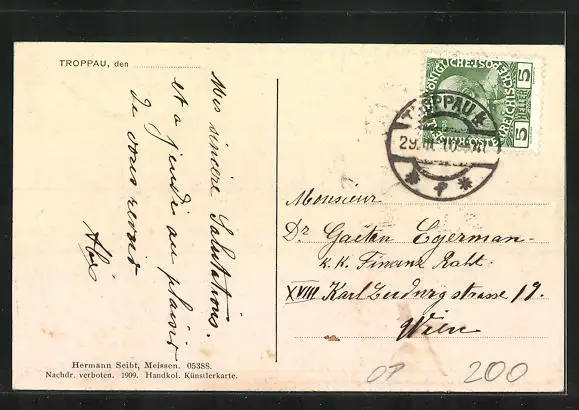 TROPPAU, den
Mes sincère Salutations.
et a jeudi au plaisir
de vous revoir
Alex
Hermann Seibt, Meissen. 05388.
Nachdr. verboten. 1909. Handkol. Künstlerkarte.
5 HELLER 5
TROPPAU 1
Monsieur
Dr Gaëtan Egerman
K.K. Finanz Raht.
XVIII Karl Ludwig strasse 19.
Wien
200